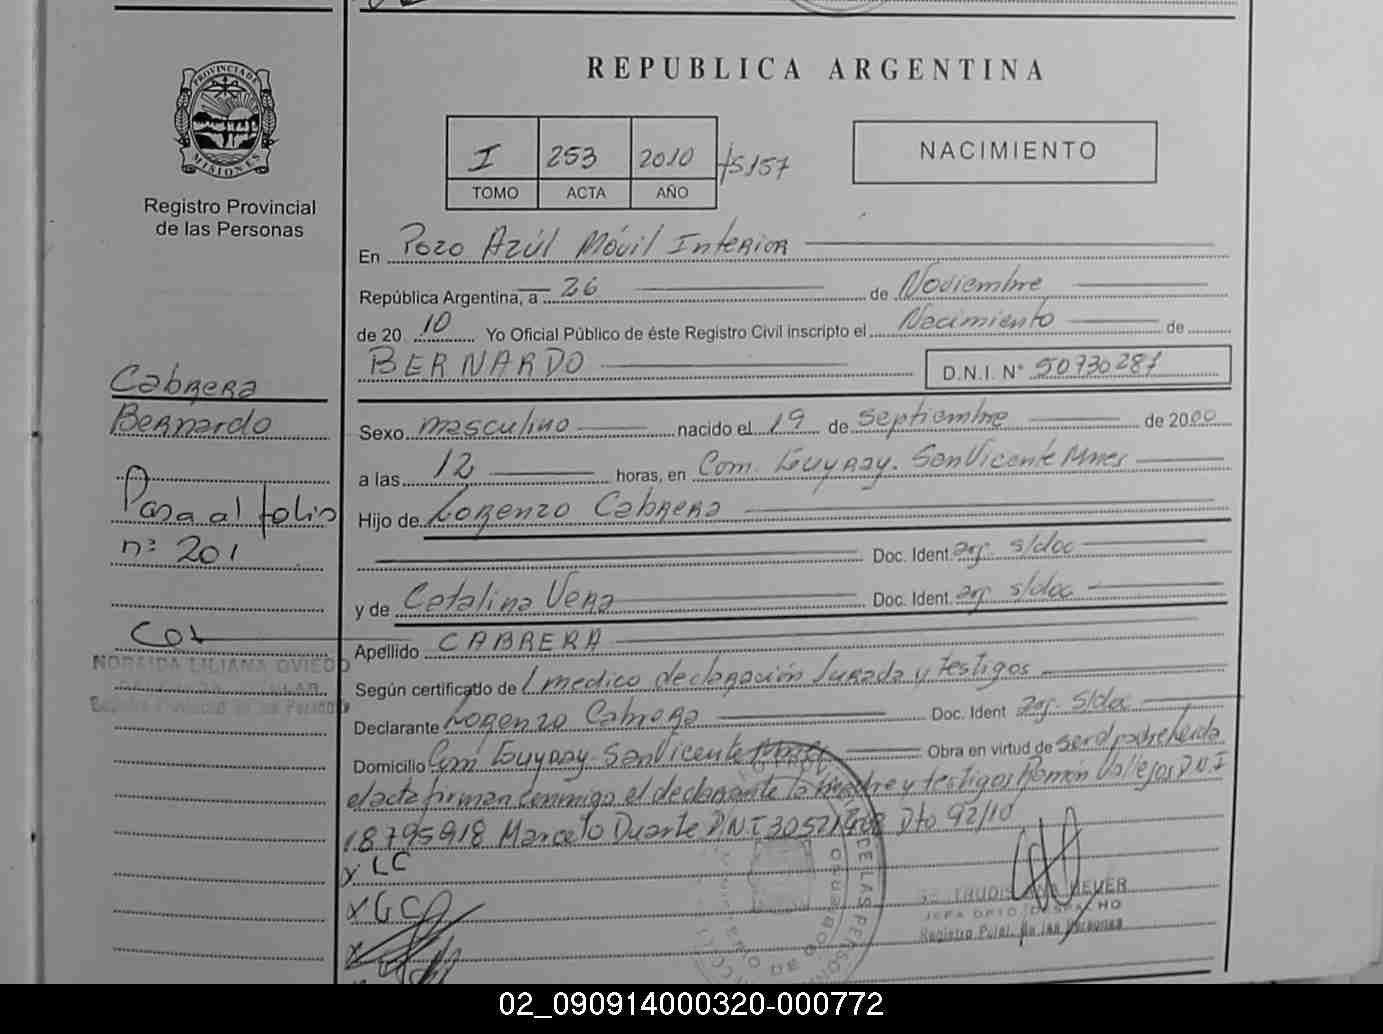 REPUBLICA ARGENTINA
PROVINCIA DE
MISIONES
Registro Provincial
de las Personas
I 253 2010 fs 157
TOMO ACTA AÑO
NACIMIENTO
En Pozo Azúl Móvil Interior
República Argentina, a 26 de Noviembre
de 20 10 Yo Oficial Público de éste Registro Civil inscripto el Nacimiento de
BERNARDO D.N.I. N° 50730287
Cabrera
Bernardo
Pasa al folio
n: 201
Sexo masculino nacido el 19 de septiembre de 2000
a las 12 horas, en Com. Guyray. San Vicente Mnes
Hijo de Lorenzo Cabrera
Doc. Ident. arg. s/doc
y de Catalina Vera Doc. Ident. arg. s/doc
Apellido CABRERA
NORAIDA LILIANA OVIEDO
Registro Provincial de las Personas
Según certificado de l medico declaración Jurada y testigos
Declarante Lorenzo Cabrera Doc. Ident arg. s/doc
Domicilio Com Guyray. San Vicente Mnes Obra en virtud de ser el padre leida
el acta firman conmigo el declarante la madre y testigos Ramón Vallejos D.N.I
18795918 Marcelo Duarte D.N.I 30521408 Dto 92/10
x LC
x GC
JEFA DPTO. DESPACHO
Registro Pcial. de las Personas
02_090914000320-000772